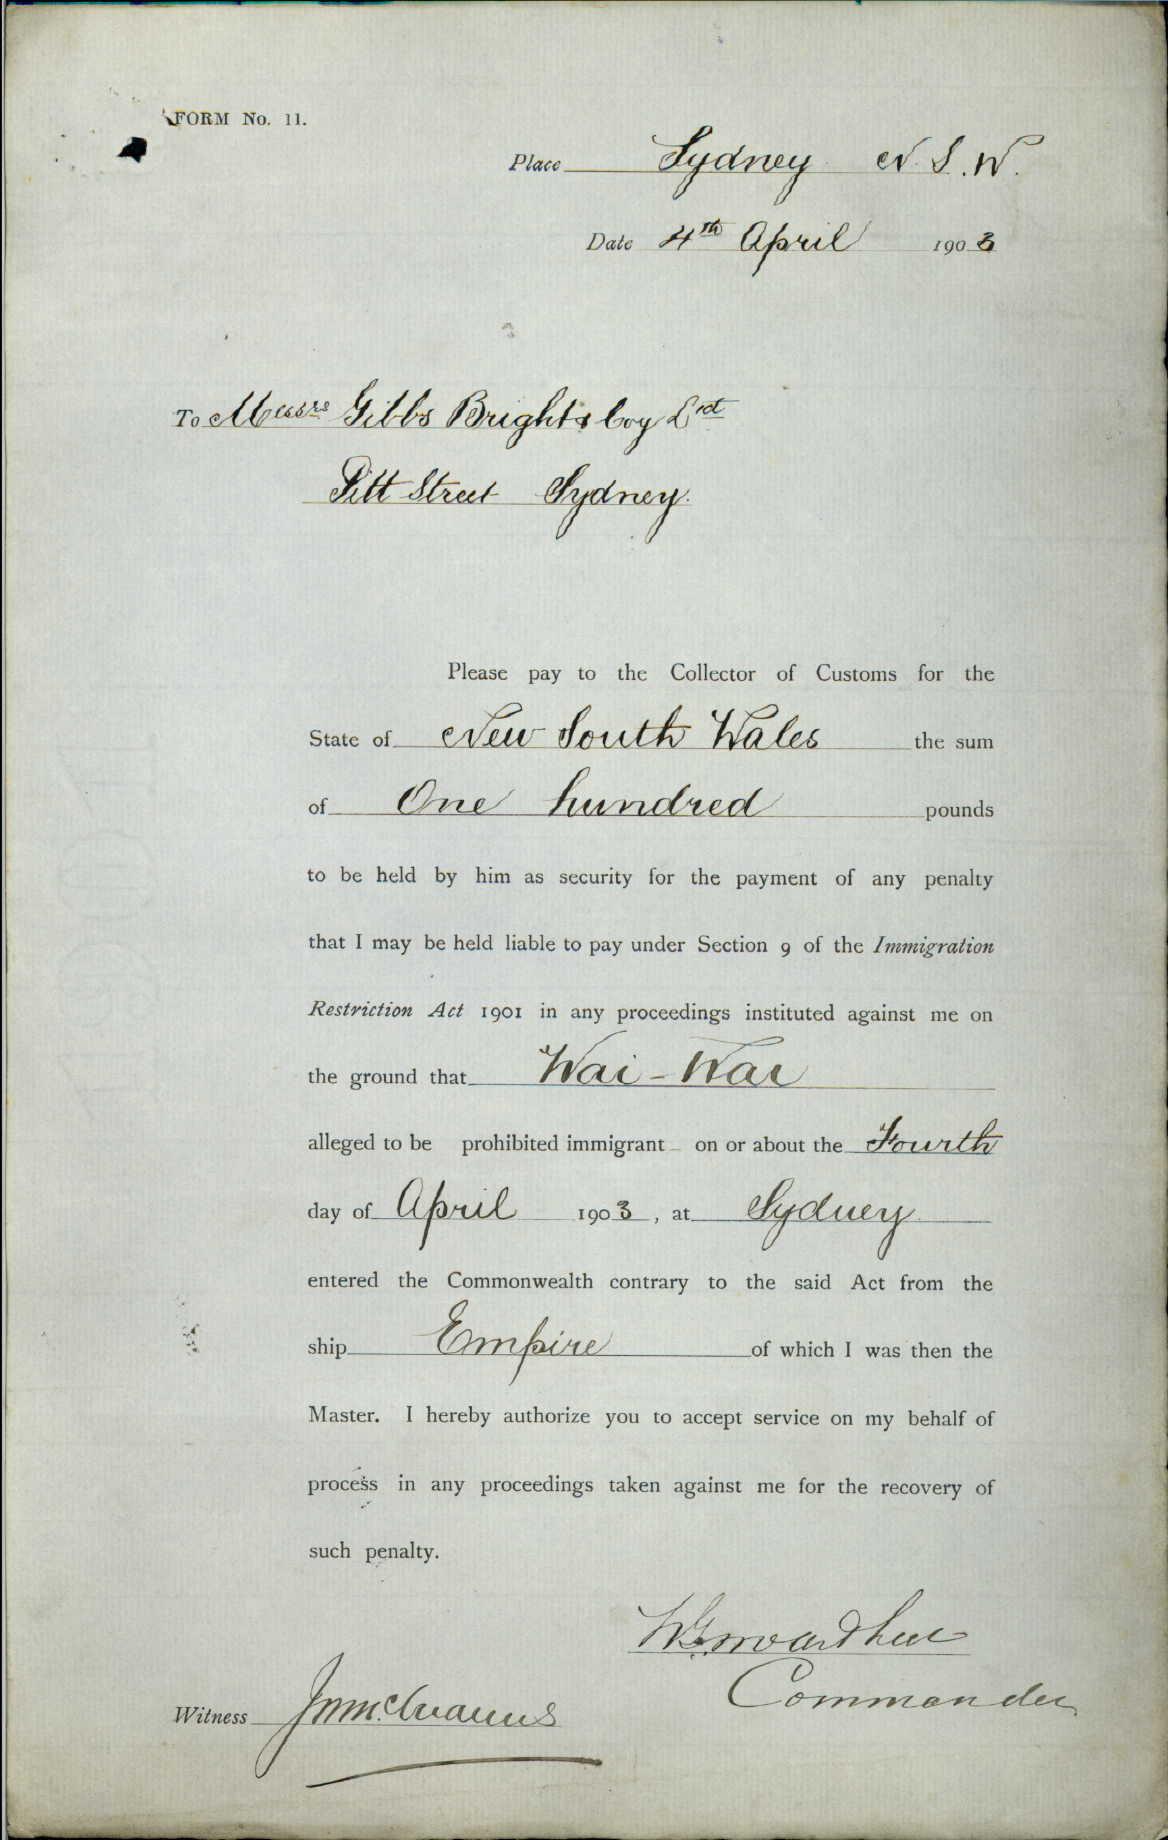 FORM No. 11.
Place Sydney N.S.W.
Date 4th April 1903
To Messrs Gibbs Bright & Coy Ltd
Pitt Street Sydney.
Please pay to the Collector of Customs for the
State of New South Wales the sum
of One hundred pounds
to be held by him as security for the payment of any penalty
that I may be held liable to pay under Section 9 of the Immigration
Restriction Act 1901 in any proceedings instituted against me on
the ground that Wai - War
alleged to be prohibited immigrant on or about the Fourth
day of April 1903, at Sydney
entered the Commonwealth contrary to the said Act from the
ship Empire of which I was then the
Master. I hereby authorize you to accept service on my behalf of
process in any proceedings taken against me for the recovery of
such penalty.
Commander
Witness